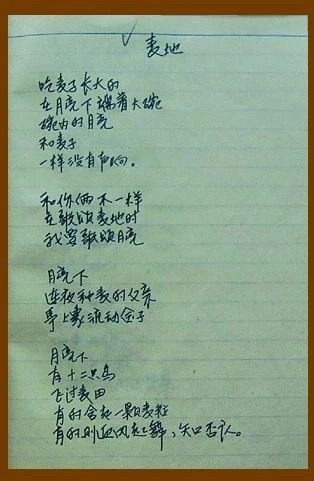 麦地
吃麦子长大的
在月亮下端着大碗
碗内的月亮
和麦子
一样没有声响。
和你俩不一样
在歌颂麦地时
我要歌颂月亮
月亮下
连夜种麦的父亲
身上象流动金子
月亮下
有十二只鸟
飞过麦田
有的含起一颗麦粒
有的则迎风起舞，矢口否认。